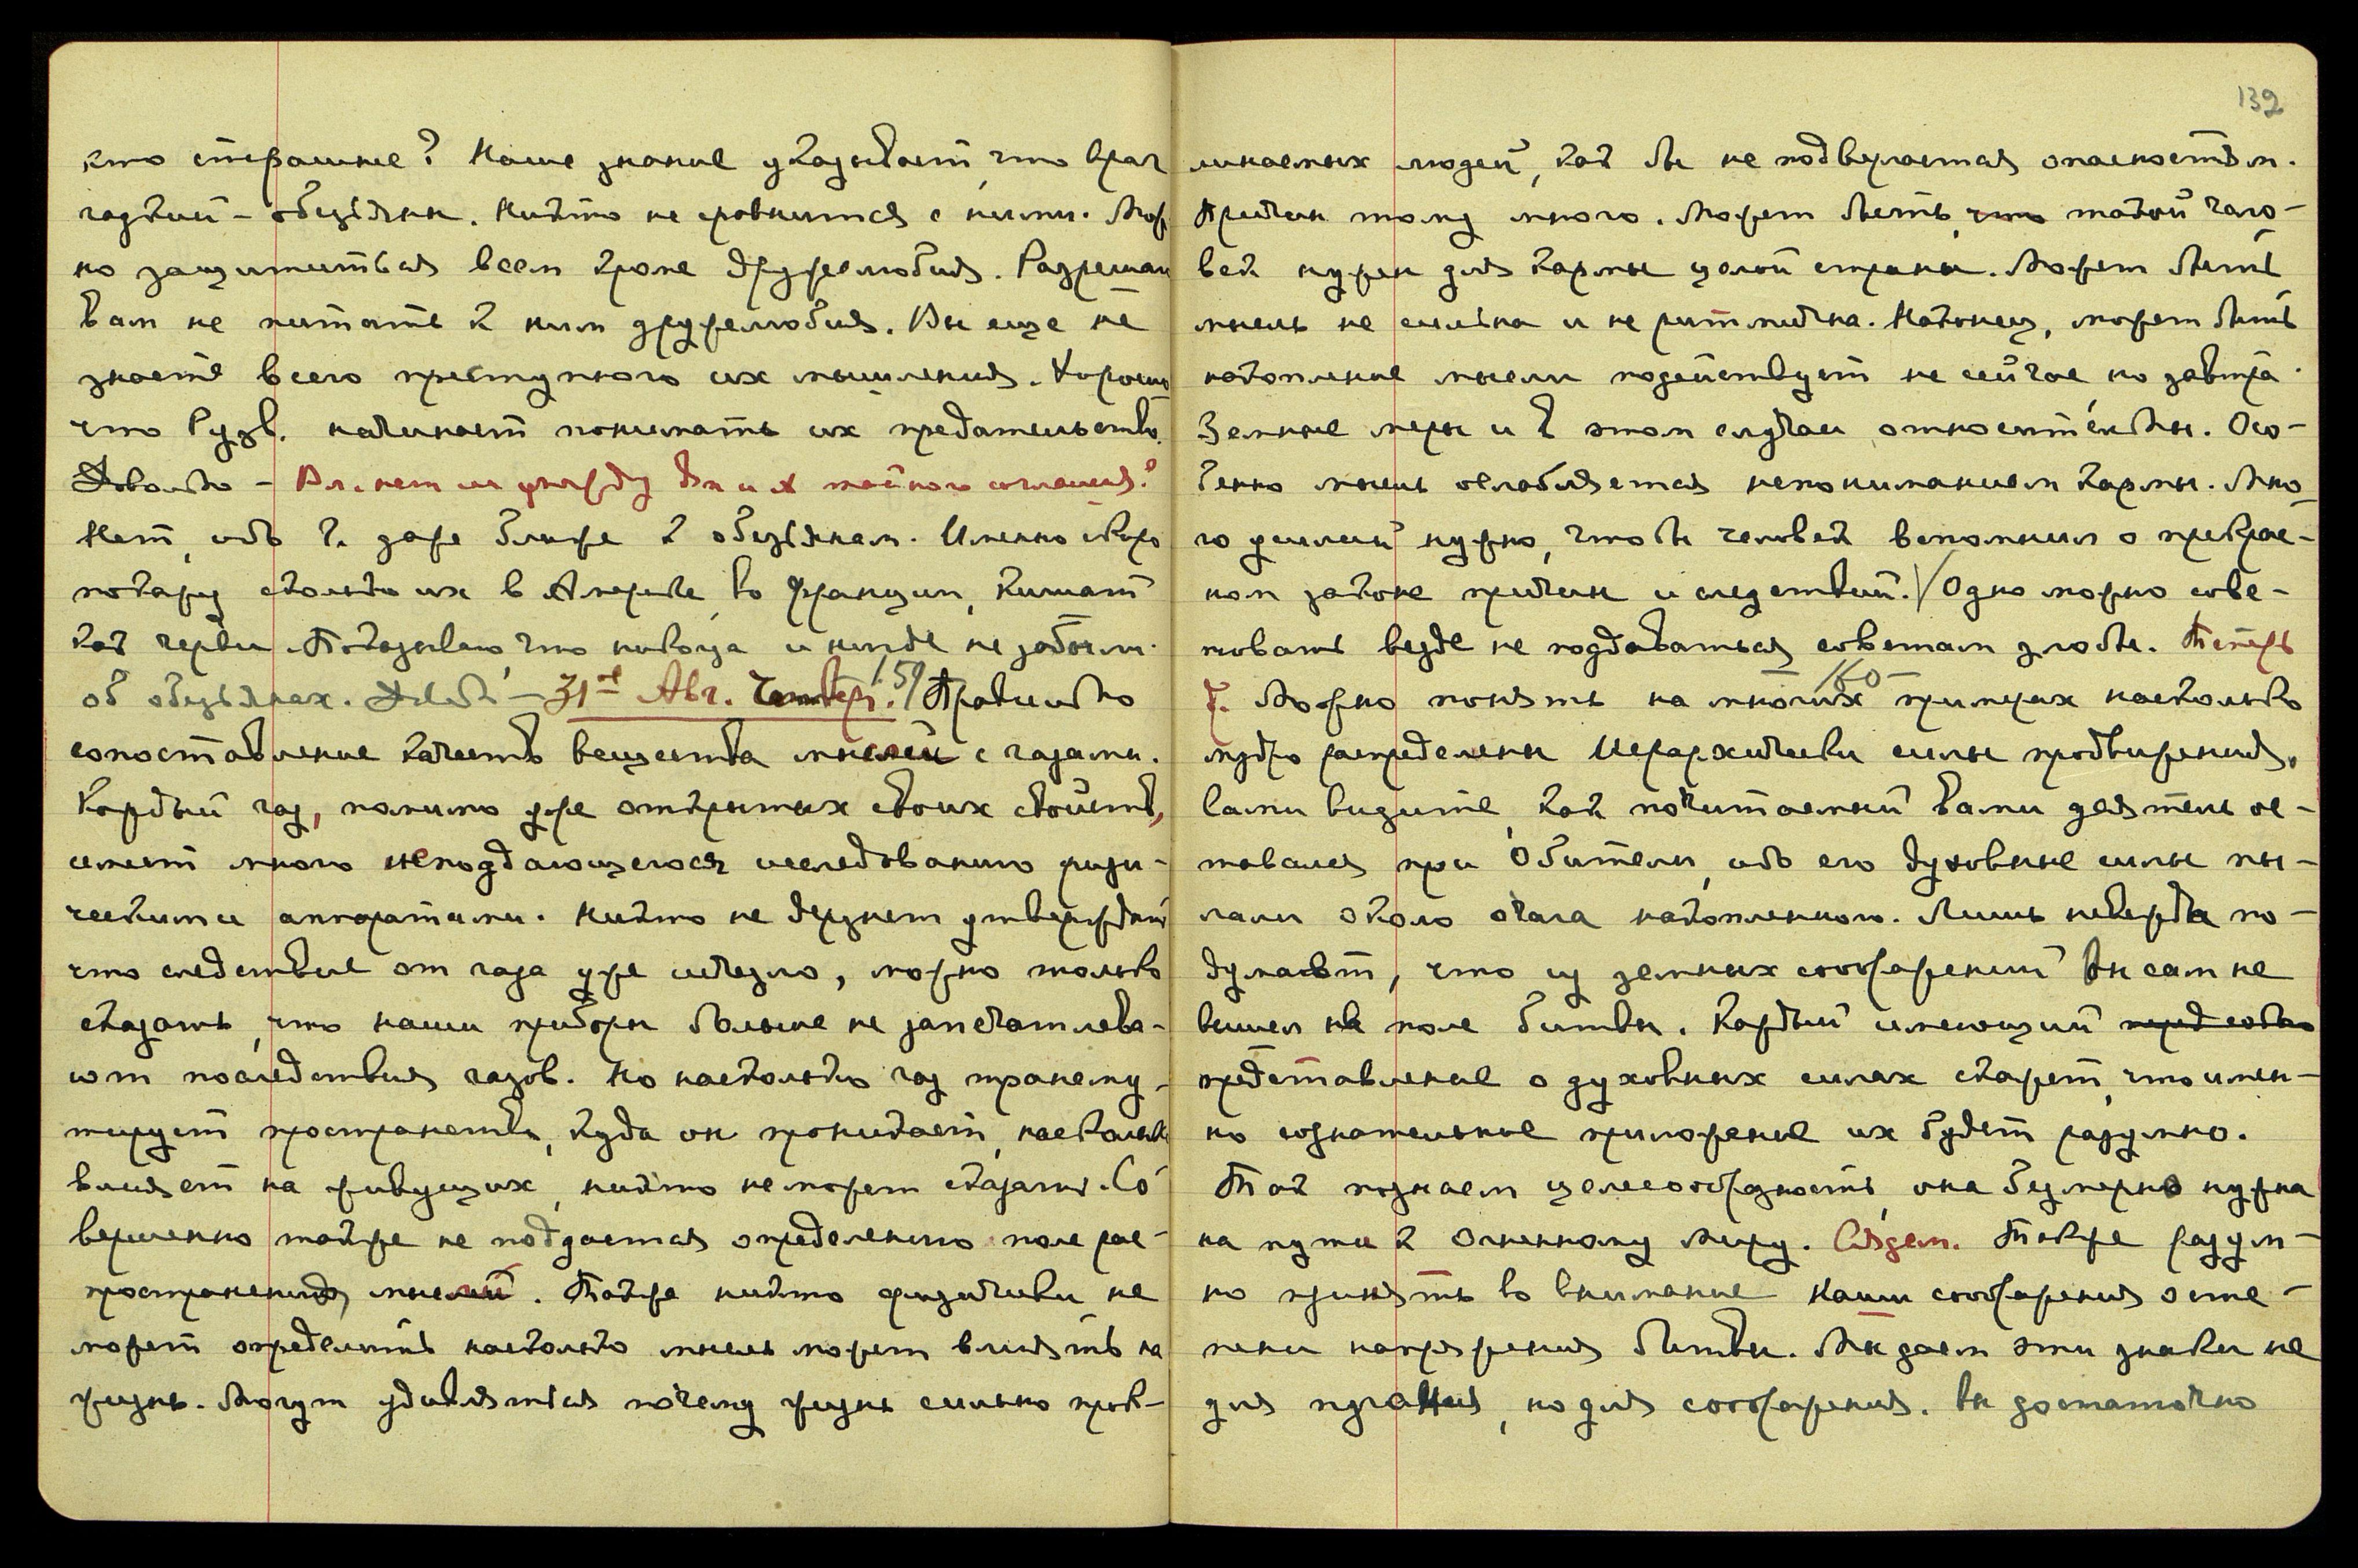 кто страшнее? Наше знание указывает, что враг
гадкий – обезьяны. Никто не сравнится с ними. Мож
но защититься всем кроме дружелюбия. Разрешаю
Вам не питать к ним дружелюбия. Вы еще не
знаете всего преступного их мышления. Хорошо
что Рузв. начинает понимать их предательство.
Довольно – Вл. нет ли между
Нет, ибо даже ближе к обезьянам. Именно скоро
покажу сколько их в Америке, во Франции, кишат
как черви. Показываю, что никогда и нигде не забыли.
об обезьянах. – 31-е Авг. Четверг. 159/ Правильно
сопоставление качеств вещества мыслей с газами.
Каждый газ, помимо уже открытых своих свойств,
имеет много неподдающегося исследованию физи-
ческими аппаратами. Никто не дерзнет утверждать
что следствие от газа уже исчезло, можно только
сказать, что наши приборы больше не запечатлева-
ют последствия газов. Но насколько газ трансму-
тирует пространство, куда он проникает, насколько
влияет на живущих, никто не может сказать. Со
вершенно также не поддается определению поле рас-
пространения мыслей. Также никто физически не
может определить насколько мысль может влиять на
жизнь. Могут удивляться почему жизнь сильно прок-
132
линаемых людей, как бы не подвергается опасностям.
Причин тому много. Может быть, что такой чело-
век нужен для кармы целой страны. Может быть
мысль не сильна и не ритмична. Наконец, может быть
накопление мысли подействует не сейчас, но завтра.
Земные меры и в этом случае относительны. Осо-
бенно мысль ослабляется непониманием кармы. Мно
го усилий нужно, чтобы человек вспомнил о прекрас-
ном законе причин и следствий. / Одно можно сове-
товать везде не поддаваться советам злобы. Теперь
160
Можно понять на многих примерах насколько
мудро распределены Иерархически силы продвижения,
сами видите, как почитаемый Вами деятель ос-
тавался при Обители, ибо его духовные силы пы-
лали около очага накопленного. Лишь невежда по-
думает, что из земных соображений Он сам не
вышел на поле битвы. Каждый имеющий перед собою
представление о духовных силах скажет, что имен-
но сознательное приложение их будет разумно.
Так познаем целесообразность, она безмерно нужна
на пути к Огненному Миру. Сядем. Также разум-
но принять во внимание Наши соображения о сте-
пени напряжения битвы. Мы даем эти знаки не
для пугания, но для соображения. Вы достаточно